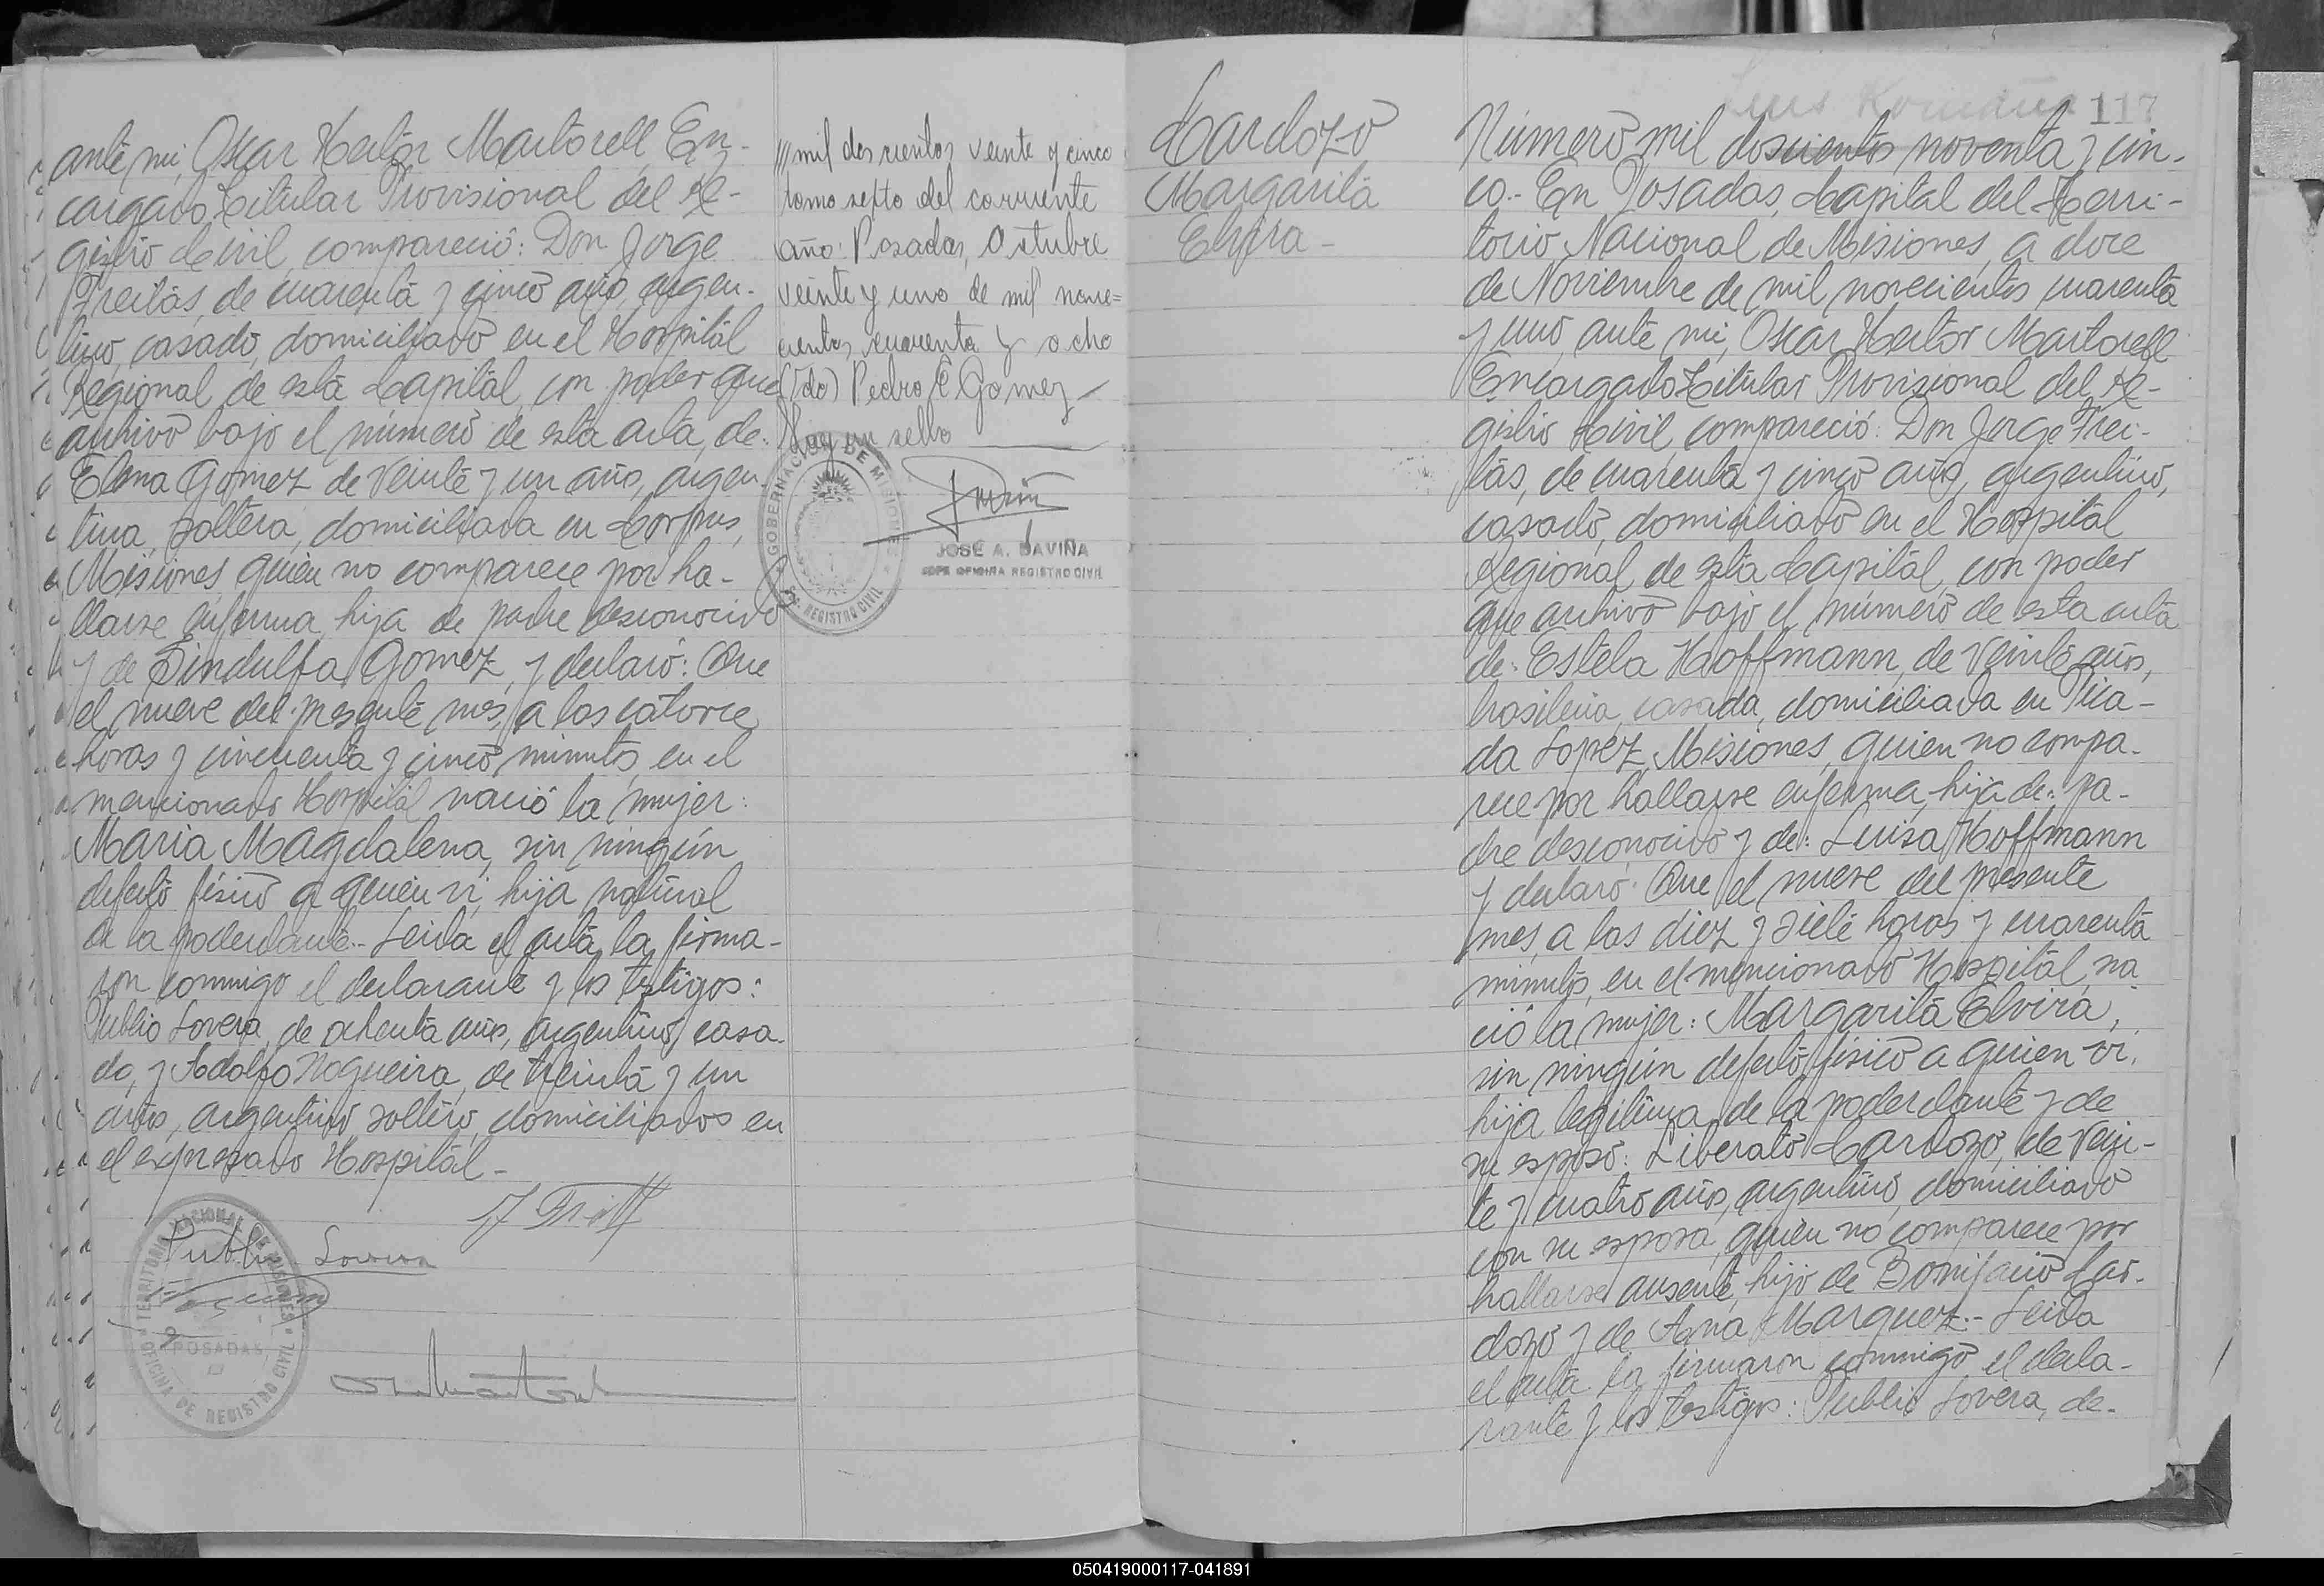 ante mi, Oscar Hector Martorell, En-
cargado Titular Provisional del Re-
gistro Civil, compareció: Don Jorge
Freitas, de cuarenta y cinco años, argen-
tino, casado, domiciliado en el Hospital
Regional de esta Capital, con poder que
archivo bajo el número de esta acta, de:
Elena Gomez de veinte y un año, argen-
tina, soltera, domiciliada en Corpus,
Misiones, quien no comparece por ha-
llarse enferma, hija de padre desconocido
y de Sindulfa Gomez, y declaró: Que
el nueve del presente mes, a las catorce
horas y cincuenta y cinco minutos, en el
mencionado Hospital nació la mujer:
Maria Magdalena, sin ningún
defecto físico a quien vi, hija natural
de la poderdante.- Leida el acta, la firma-
ron conmigo el declarante y los testigos:
Publio Lovera, de ochenta años, argentino, casa-
do, y Adolfo Nogueira, de treinta y un
años, argentino soltero, domiciliados en
el expresado Hospital.-
Publio Lovera
TERRITORIO NACIONAL DE MISIONES
POSADAS
OFICINA DE REGISTRO CIVIL
/// mil doscientos veinte y cinco
tomo sexto del corriente
año: Posadas, Octubre
veinte y uno de mil nove=
cientos cuarenta y ocho
(Fdo) Pedro E Gomez
Hay un sello
GOBERNACION DE MISIONES
REGISTRO CIVIL
JOSE A. DAVIÑA
JEFE OFICINA REGISTRO CIVIL
Cardozo
Margarita
Elvira-
117
Número mil doscientos noventa y cin-
co.- En Posadas, Capital del Terri-
torio Nacional de Misiones, a doce
de Noviembre de mil novecientos cuarenta
y uno, ante mi, Oscar Hector Martorell
Encargado Titular Provisional del Re-
gistro Civil, compareció: Don Jorge Frei-
tas, de cuarenta y cinco años, argentino,
casado, domiciliado en el Hospital
Regional de esta Capital, con poder
que archivo bajo el número de esta acta
de: Estela Hoffmann, de veinte años,
brasilera, casada, domiciliada en Pica-
da Lopez, Misiones, quien no compa-
rece por hallarse enferma, hija de: pa-
dre desconocido y de: Luisa Hoffmann
y declaró: Que el nueve del presente
mes, a las diez y siete horas y cuarenta
minutos, en el mencionado Hospital, na
ció la mujer: Margarita Elvira,
sin ningún defecto físico a quien vi,
hija legítima de la poderdante y de
su esposo: Liberato Cardozo, de vein-
te y cuatro años, argentino, domiciliado
con su esposa, quien no comparece por
hallarse ausente, hijo de Bonifacio Car-
dozo y de Ana Marquez.- Leida
el acta la firmaron conmigo el decla-
rante y los testigos: Publio Lovera, de-
050419000117-041891